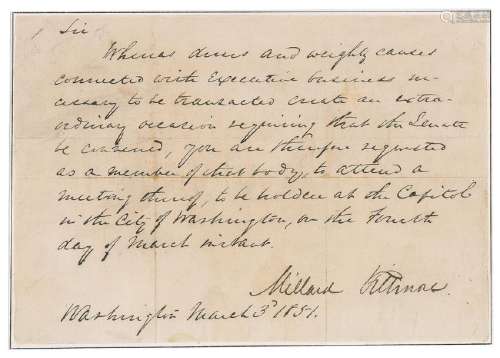 Sir
Whereas divers and weighty causes
connected with Executive business ne-
cessary to be transacted create an extra-
ordinary occasion requiring that the Senate
be convened, you are therefore requested
as a member of that body, to attend a
meeting thereof, to be holden at the Capitol
in the City of Washington, on the Fourth
day of March instant.
Millard Fillmore.
Washington March 3d 1851.